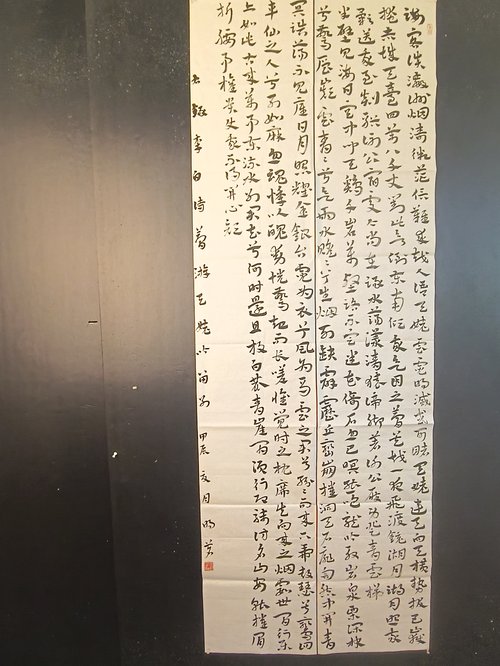 海客談瀛洲烟濤微茫信難求越人語天姥雲霓明滅或可睹天姥連天向天橫勢拔五嶽
掩赤城天台四萬八千丈對此欲倒東南傾我欲因之夢吳越一夜飛渡鏡湖月湖月照我
影送我至剡溪謝公宿處今尚在淥水蕩漾清猿啼腳著謝公屐身登青雲梯
半壁見海日空中聞天雞千岩萬壑路不定迷花倚石忽已暝熊咆龍吟殷岩泉栗深林
兮驚層巔雲青青兮欲雨水澹澹兮生烟列缺霹靂丘巒崩摧洞天石扉訇然中開青
冥浩蕩不見底日月照耀金銀台霓為衣兮風為馬雲之君兮紛紛而來下虎鼓瑟兮鸞回
車仙之人兮列如麻忽魂悸以魄動恍驚起而長嗟惟覺時之枕席失向來之烟霞世間行樂
亦如此古來萬事東流水別君去兮何時還且放白鹿青崖間須行即騎訪名山安能摧眉
折腰事權貴使我不得開心顏
右錄李白詩夢游天姥吟留別 甲辰夏月 明